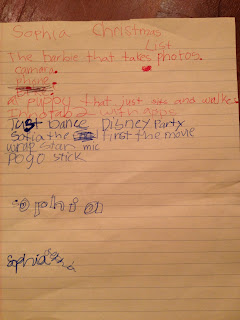 Sophia Christmas
List
The barbie that takes photos.
camara.
phone.
puppy that just and walks
2 with apps
Just Dance Disney Party
Sofia the first the movie
star mic
Pogo stick
Sophia
Sophia